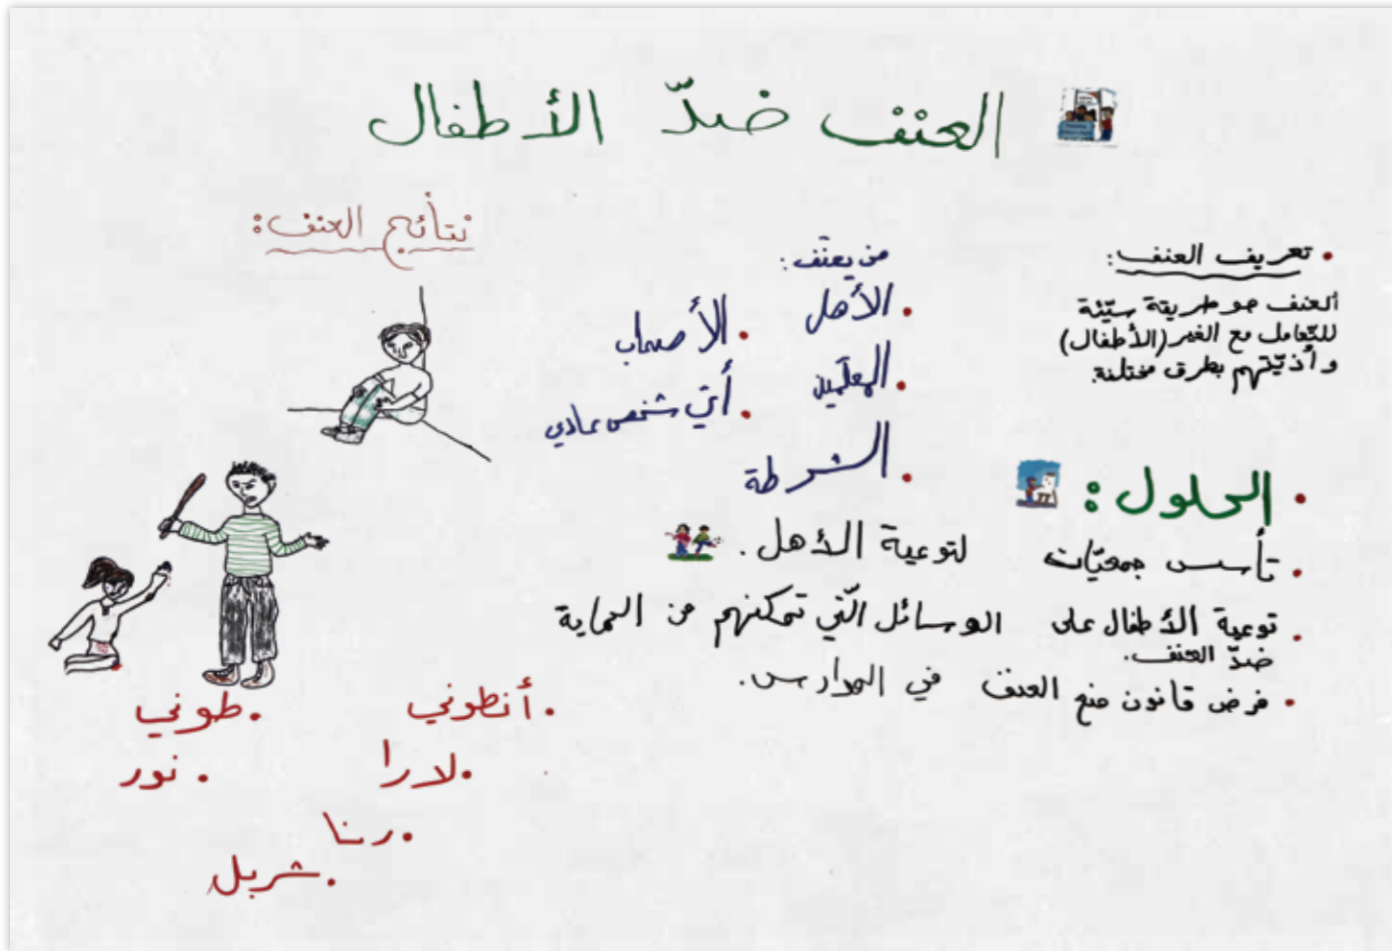 العنف ضدّ الأطفال
• تعريف العنف:
العنف هو طريقة سيّئة
للتّعامل مع الغير (الأطفال)
وأذيّتهم بطرق مختلفة.
من يعنّف:
• الأهل
• الأصحاب
• المعلّمين
• أيّ شخص عادي
• الشرطة
نتائج العنف:
• الحلول:
• تأسس جمعيّات لتوعية الأهل.
• توعية الأطفال على الوسائل الّتي تمكنهم من الحماية
ضدّ العنف.
• فرض قانون منع العنف في المدارس.
• أنطوني
• طوني
• لارا
• نور
• رنا
• شربل